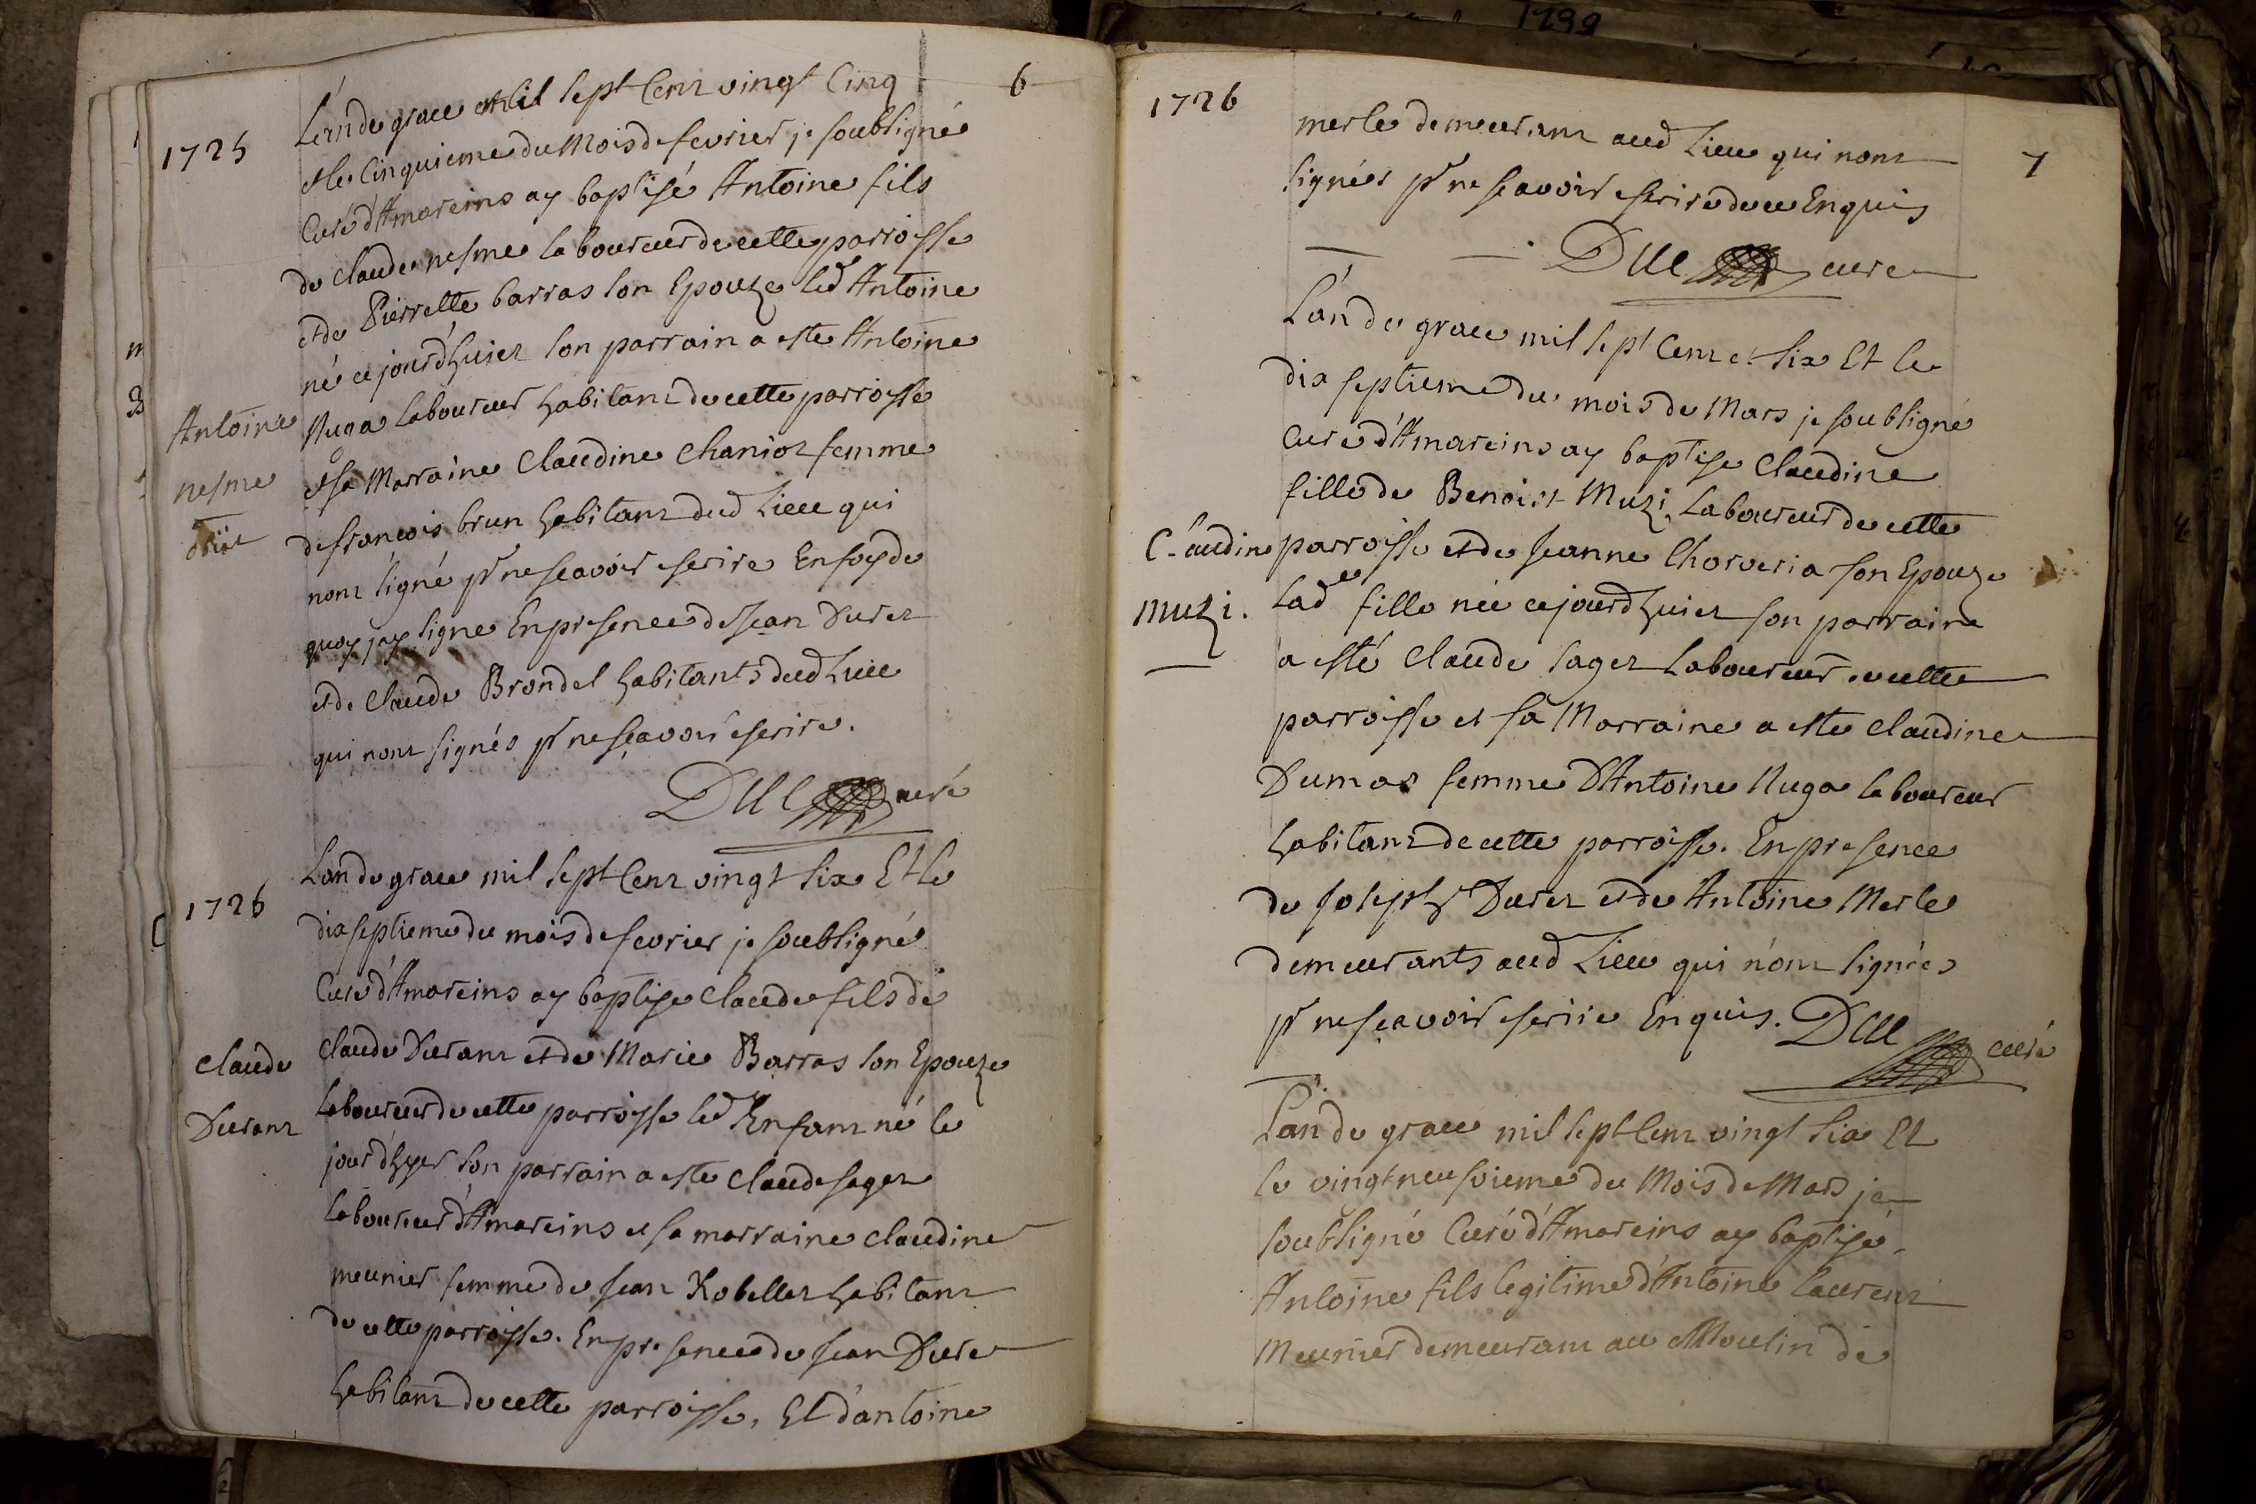 1725
6
L'an de grace Mil sept Cent vingt Cinq
et le Cinquieme du Mois de fevrier je soubsigné
Curé d'Amareins ay baptisé Antoine fils
de Claude nesme laboureur de cette parroisse
et de Pierrette barras son Epouze led Antoine
né ce jourd'huict son parrain a este Antoine
Nuga laboureur habitant de cette parroisse
et sa Marraine Claudine Chaniot femme
de francois brun habitant dud Lieu qui
nont signé pr ne scavoir escrire En foy de
quoy jay signe En presence de Jean Duret
et de Claude Brondel habitants dud Lieu
qui nont signés pr ne sçavoir escrire.
DUC curé
Antoine
nesme
1726
L'an de grace mil sept Cent vingt six Et le
dix septieme du mois de fevrier je soubsigné
Curé d'Amareins ay baptise Claude fils de
Claude Durant et de Marie Barras son Epouze
laboureur de cette parroisse led Enfant né le
jour d'hyer son parrain a este Claude sager
laboureur d'Amareins et sa marraine Claudine
meunier femme de Jean Robellet habitant
de cette parroisse. En presence de Jean Dure
habitant de cette parroisse, Et d'antoine
Claude
Durant
1739
1726
7
merle demeurant aud Lieu qui nont
signés pr ne scavoir escrire de ce Enquis
DUC cure
L'an de grace mil sept Cent et six Et le
dix septieme du mois de Mars je soubsigné
Curé d'Amareins ay baptise Claudine
fille de Benoist Muzi Laboureur de cette
parroisse et de Jeanne Chorveria son Epouze
lade fille née ce jourd'huict son parrain
a esté Claude sager Laboureur cette
parroisse et sa Marraine a este Claudine
Dumas femme D'Antoine Nuga laboureur
habitant de cette parroisse. En presence
de Joseph Duret et de Antoine Merle
demeurants aud Lieu qui n'ont signées
pr ne sçavoir escrire Enquis. DUC curé
Claudine
muzi.
L'an de grace mil sept Cent vingt six Et
le vingt neufvieme du Mois de Mars je
soubsigné Curé d'Amareins ay baptisé
Antoine fils legitime d'Antoine laurent
Meunier demeurant au Moulin de